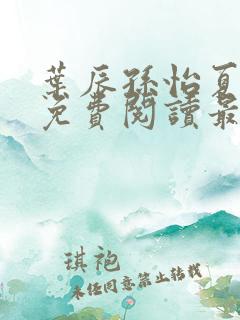 葉辰孫怡夏
免費閱讀最
琪袍
未經同意禁止转载